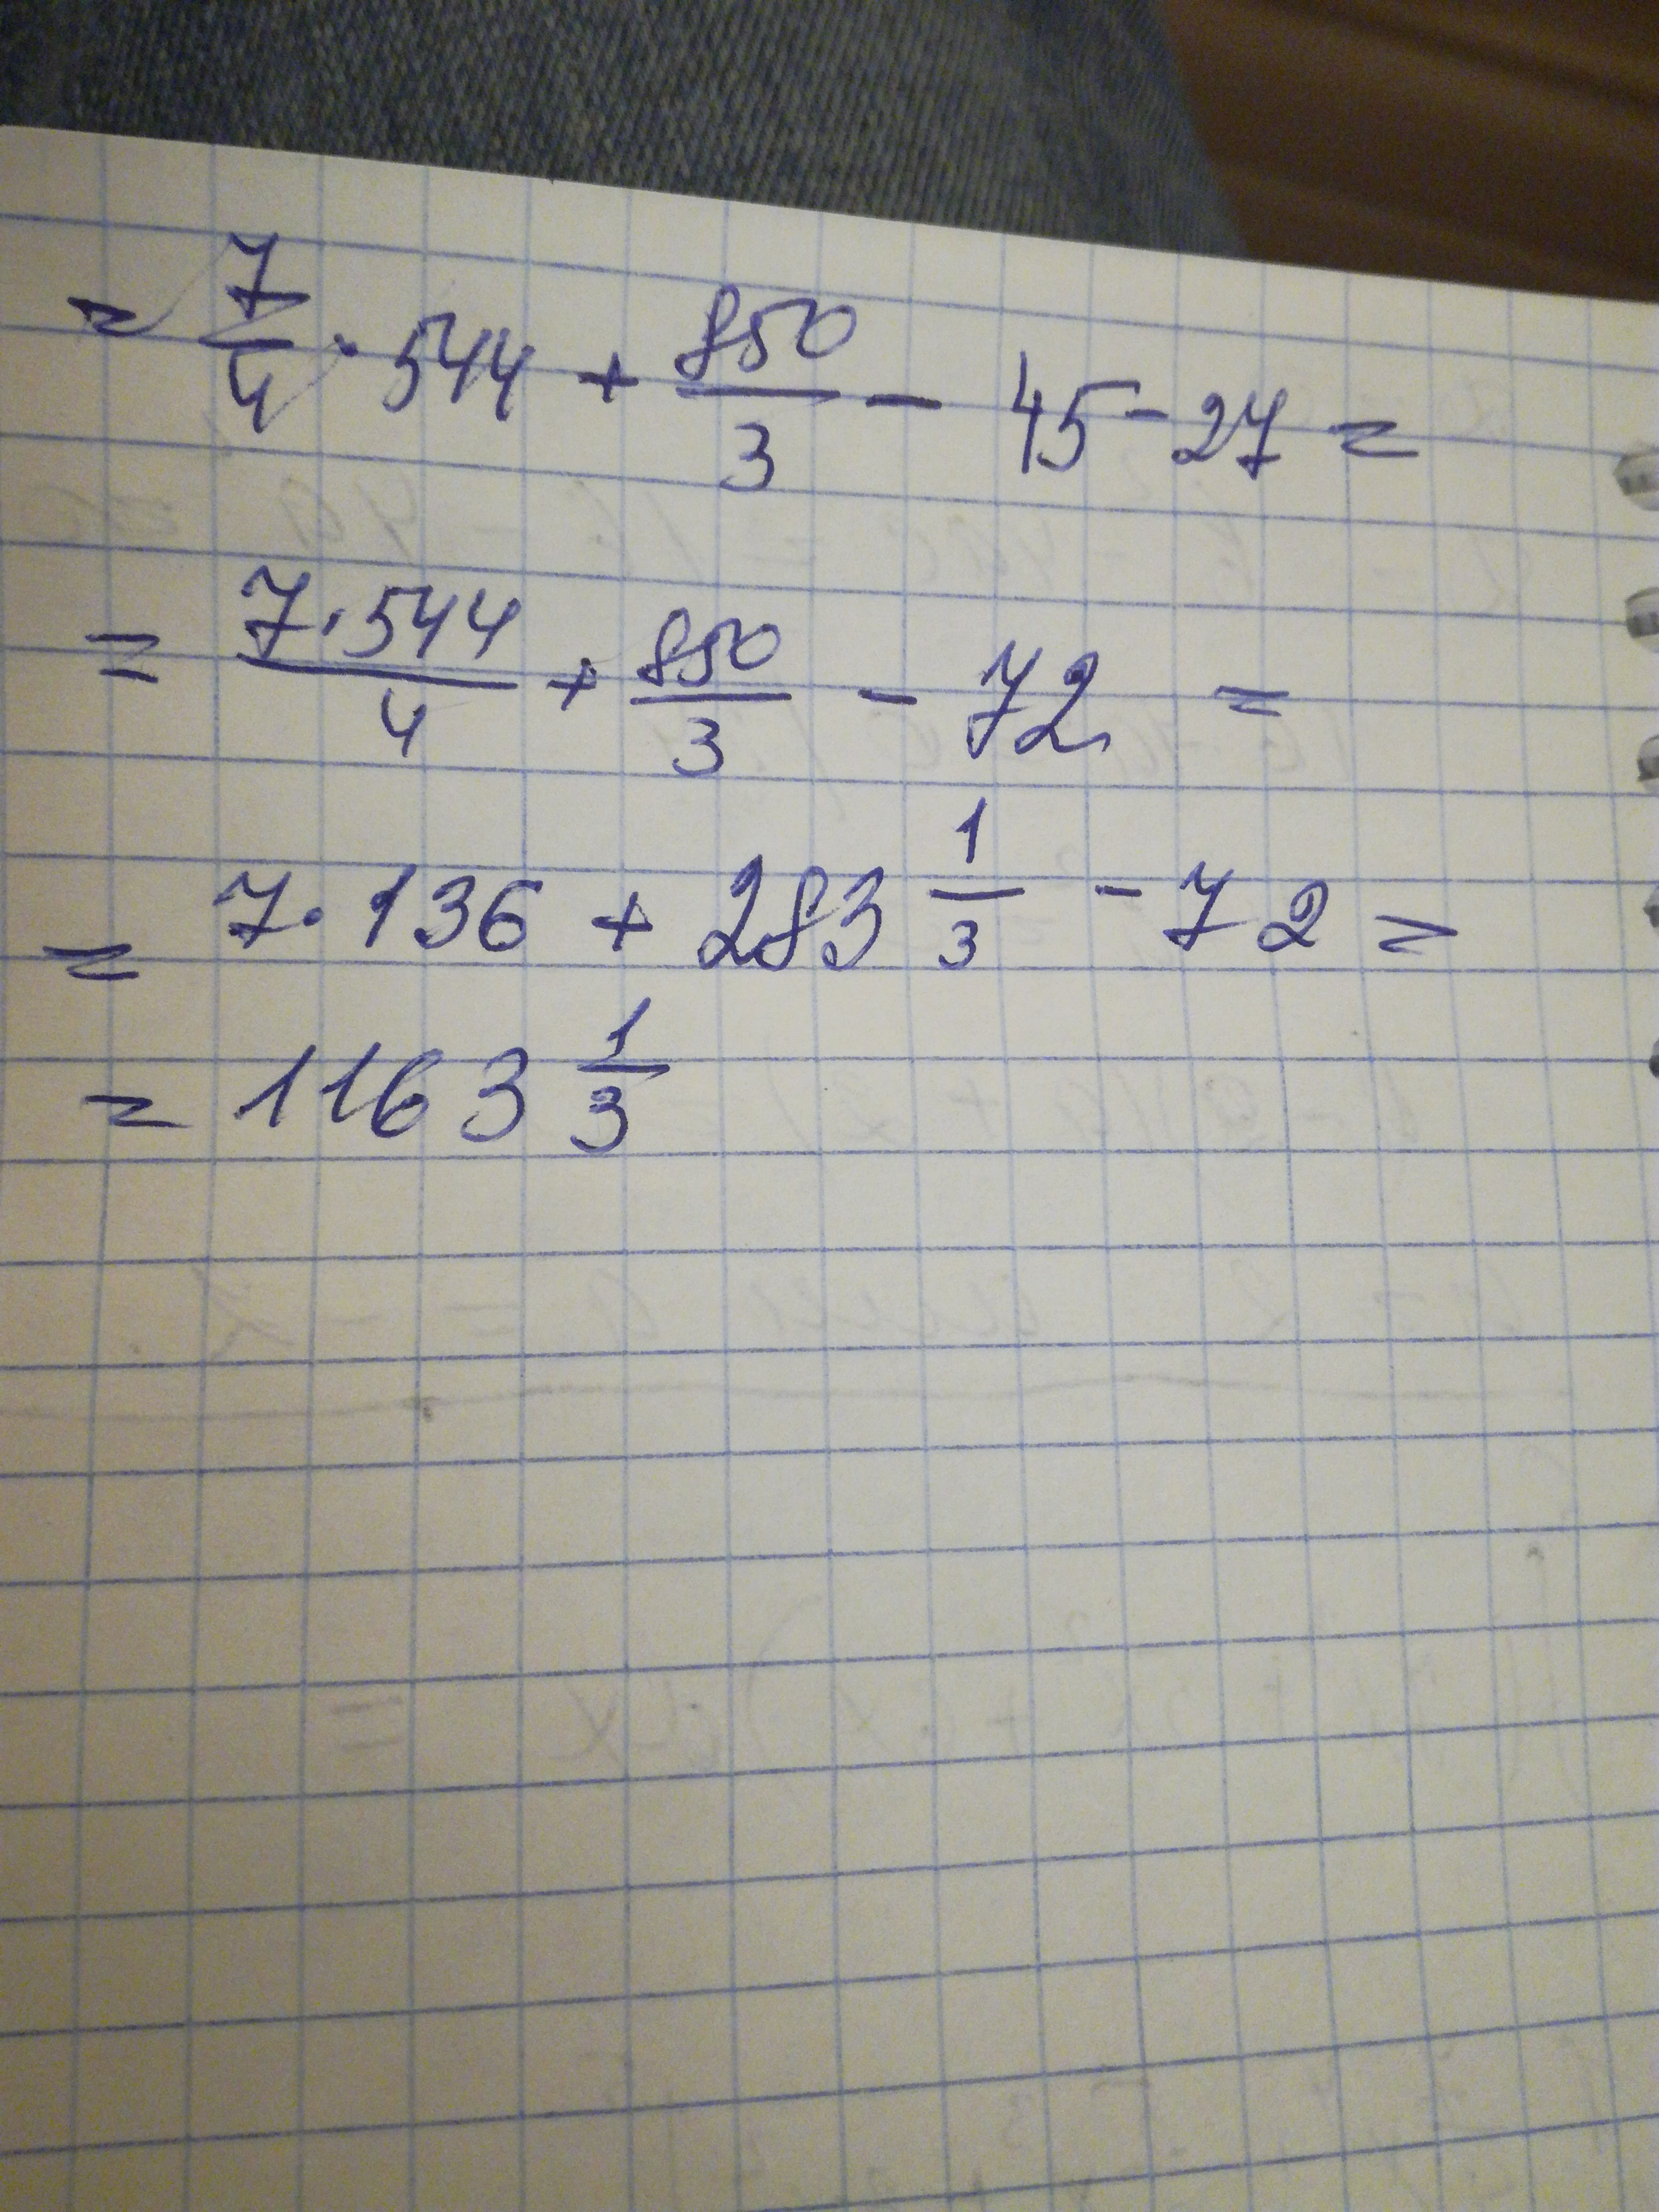 = 7/4 · 544 + 850/3 - 45 - 27 =
= 7·544/4 + 850/3 - 72 =
= 7·136 + 283 1/3 - 72 =
= 1163 1/3